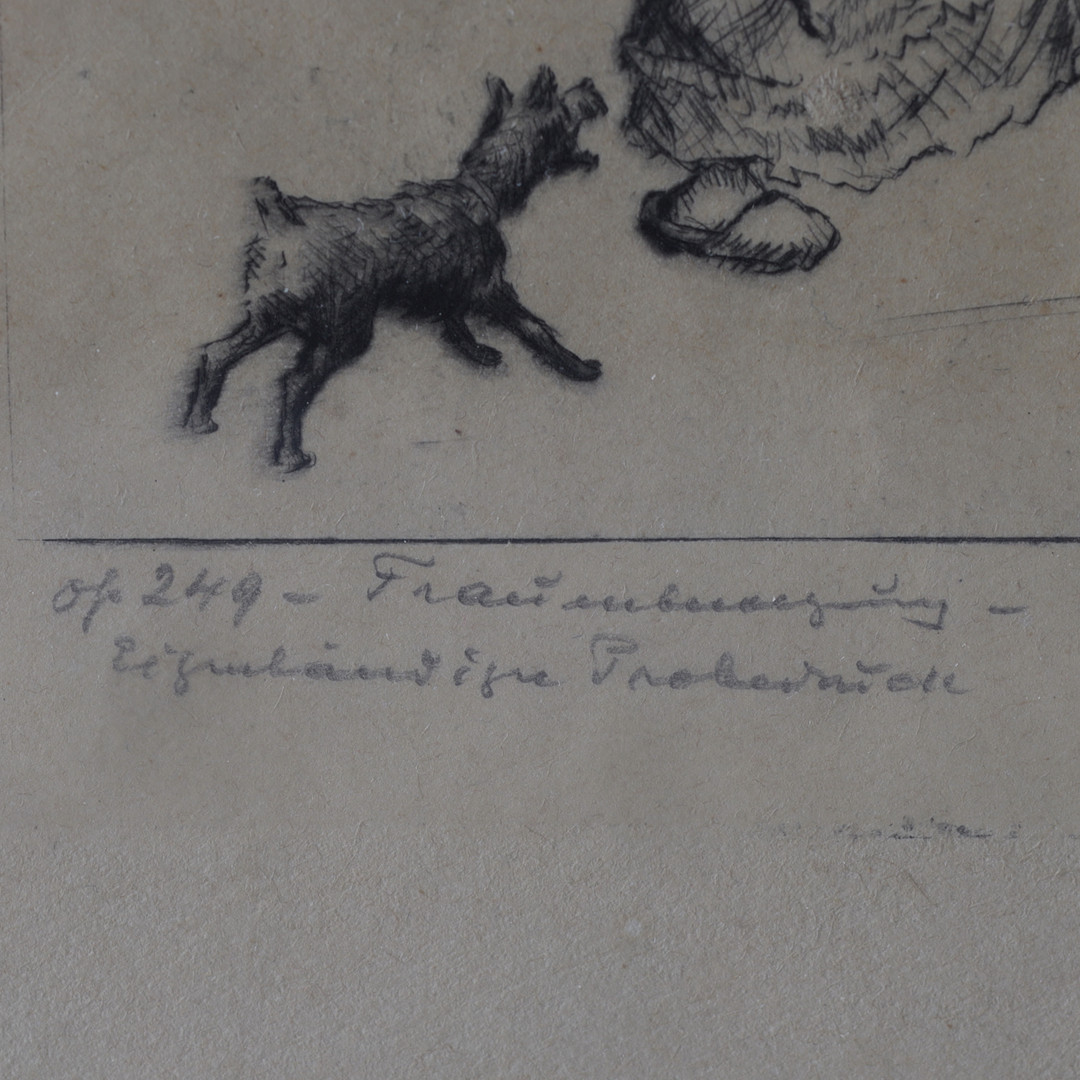 op 249 – Frauenbewegung –
Eigenhändiger Probedruck